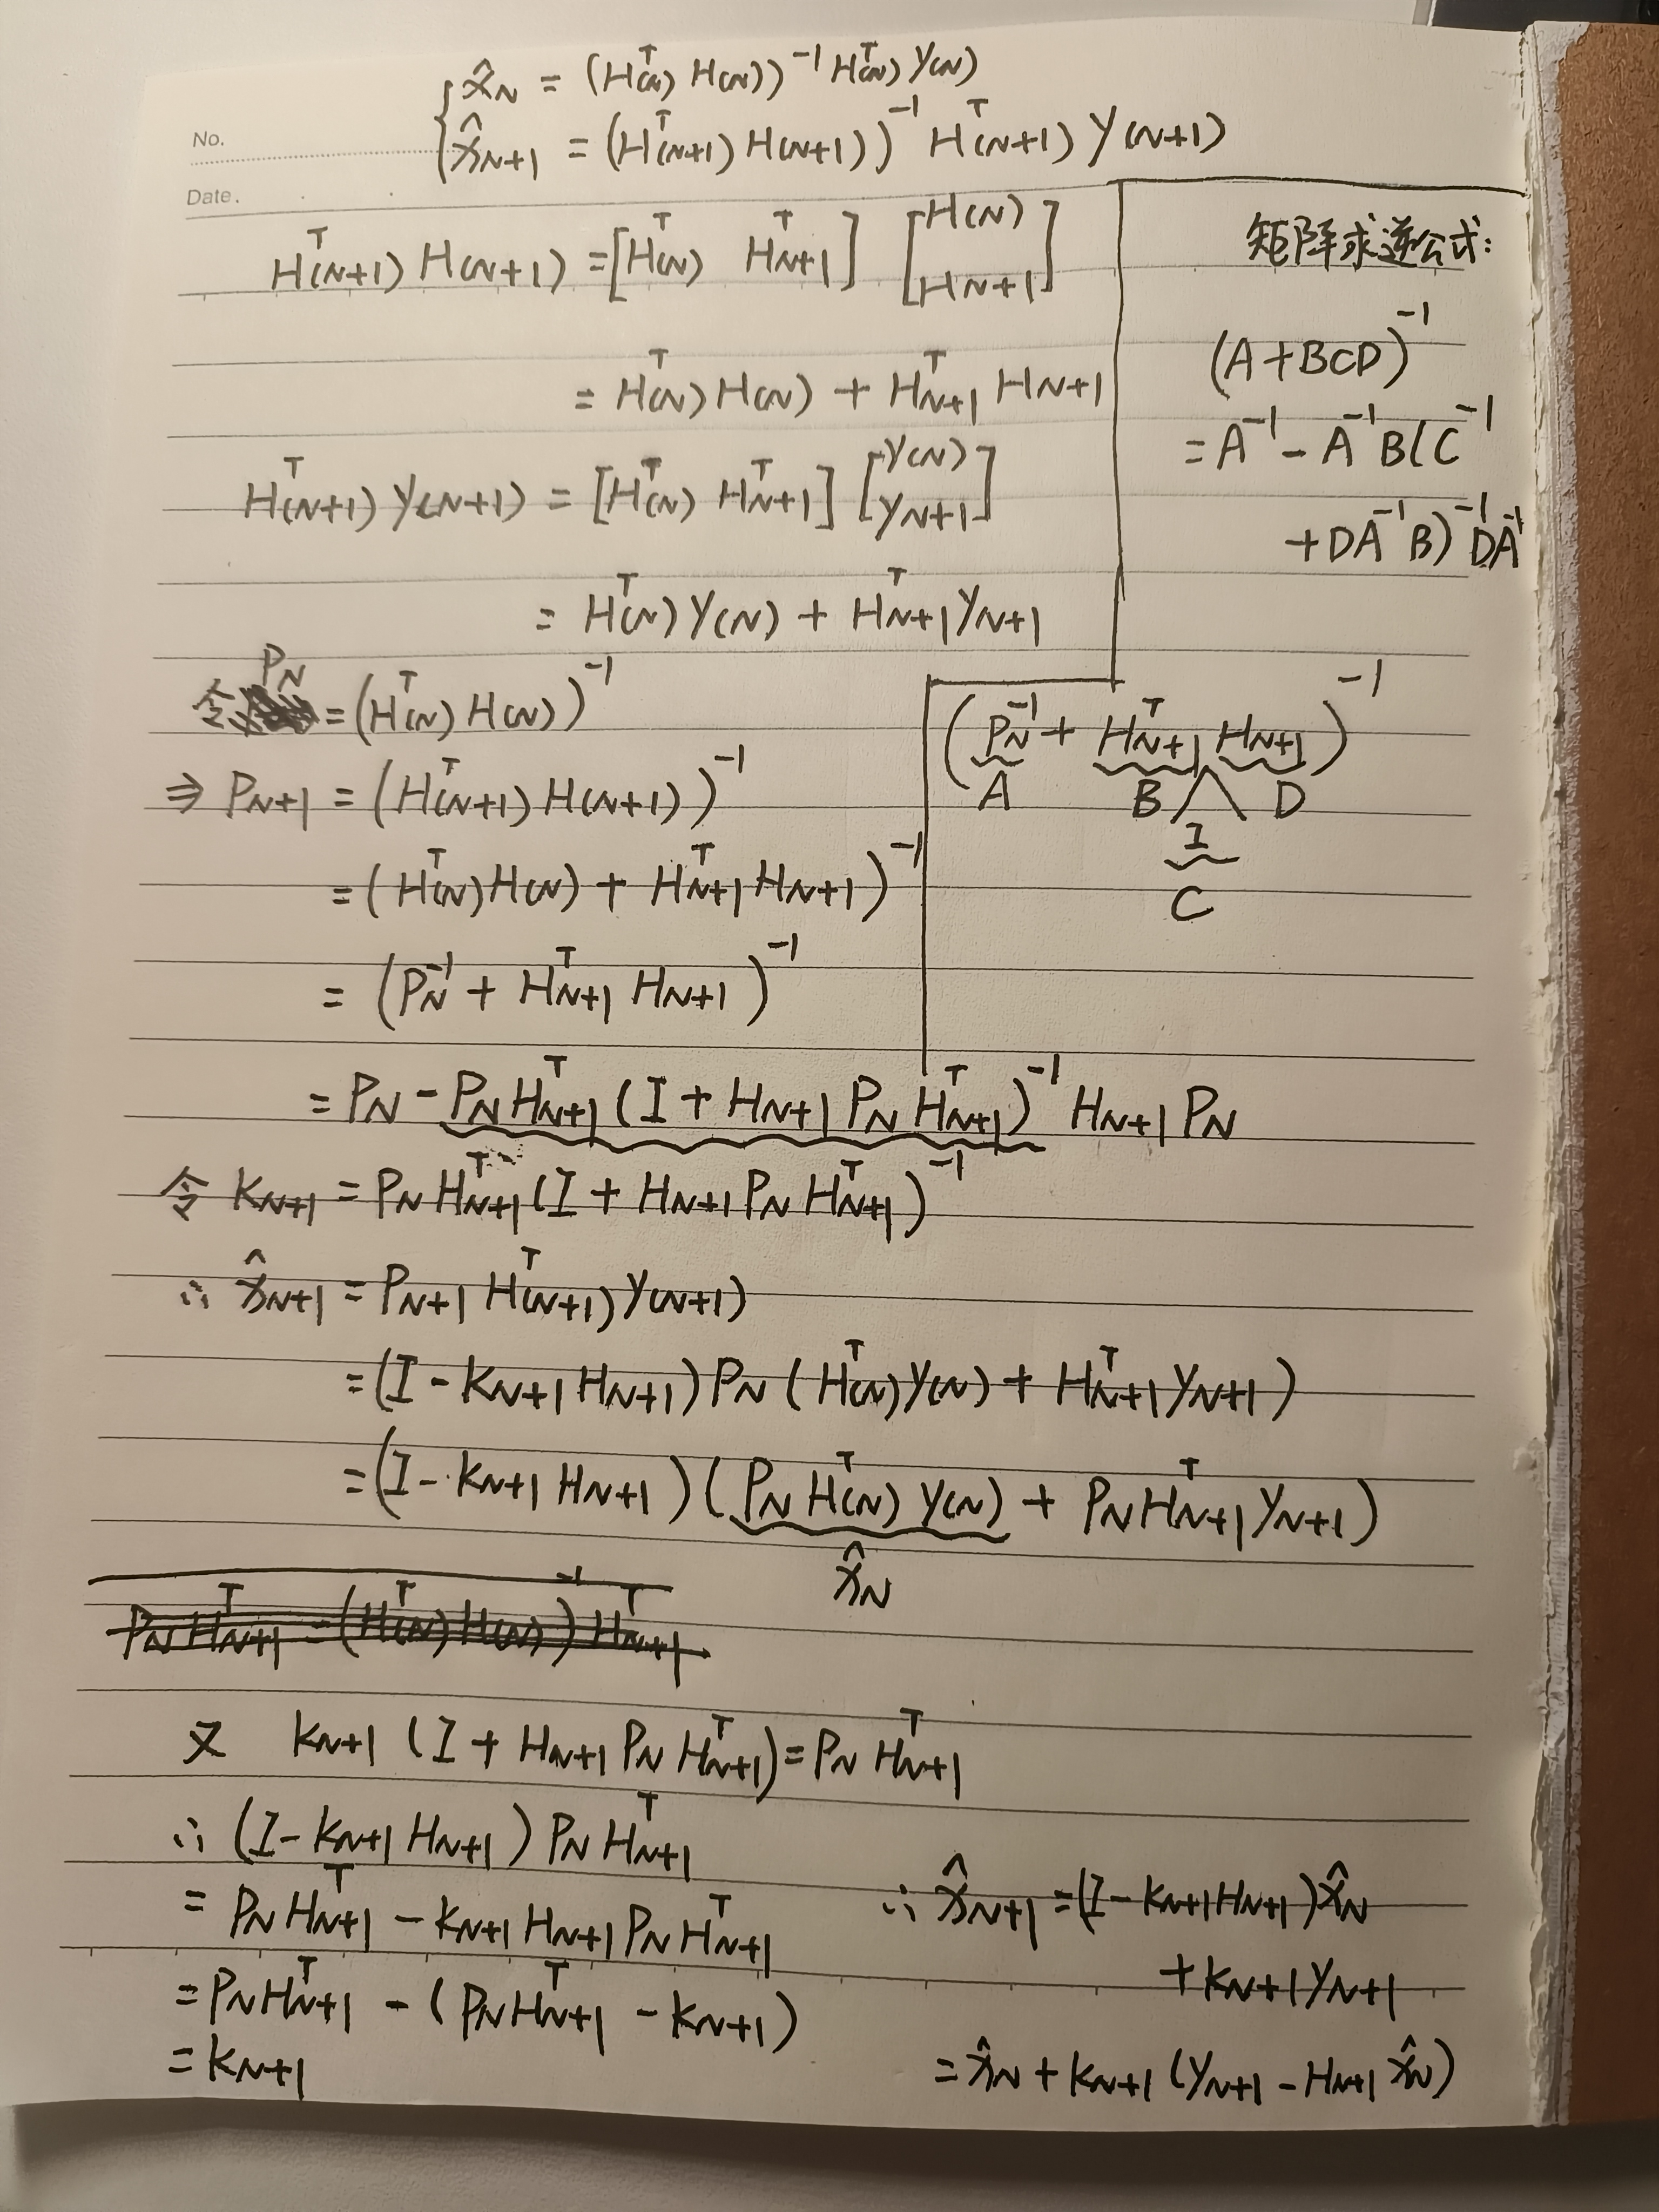 No.
Date.
x̂_N = (H^T(N) H(N))^{-1} H^T(N) Y(N)
x̂_{N+1} = (H^T(N+1) H(N+1))^{-1} H^T(N+1) Y(N+1)
H^T(N+1) H(N+1) = [H^T(N) H^T_{N+1}] [H(N) H_{N+1}]
= H^T(N) H(N) + H^T_{N+1} H_{N+1}
H^T(N+1) Y(N+1) = [H^T(N) H^T_{N+1}] [Y(N) y_{N+1}]
= H^T(N) Y(N) + H^T_{N+1} y_{N+1}
矩阵求逆公式:
(A+BCD)^{-1}
= A^{-1} - A^{-1}B(C^{-1}
+DA^{-1}B)^{-1}DA^{-1}
令 P_N = (H^T(N) H(N))^{-1}
⇒ P_{N+1} = (H^T(N+1) H(N+1))^{-1}
= (H^T(N) H(N) + H^T_{N+1} H_{N+1})^{-1}
= (P_N^{-1} + H^T_{N+1} H_{N+1})^{-1}
(P_N^{-1} + H^T_{N+1} H_{N+1})^{-1}
A B D
I
C
= P_N - P_N H^T_{N+1} (I + H_{N+1} P_N H^T_{N+1})^{-1} H_{N+1} P_N
令 K_{N+1} = P_N H^T_{N+1} (I + H_{N+1} P_N H^T_{N+1})^{-1}
∴ x̂_{N+1} = P_{N+1} H^T(N+1) Y(N+1)
= (I - K_{N+1} H_{N+1}) P_N (H^T(N) Y(N) + H^T_{N+1} y_{N+1})
= (I - K_{N+1} H_{N+1}) (P_N H^T(N) Y(N) + P_N H^T_{N+1} y_{N+1})
x̂_N
P_N H^T_{N+1} = (H^T(N) H(N))^{-1} H^T_{N+1}
又 K_{N+1} (I + H_{N+1} P_N H^T_{N+1}) = P_N H^T_{N+1}
∴ (I - K_{N+1} H_{N+1}) P_N H^T_{N+1}
= P_N H^T_{N+1} - K_{N+1} H_{N+1} P_N H^T_{N+1}
= P_N H^T_{N+1} - (P_N H^T_{N+1} - K_{N+1})
= K_{N+1}
∴ x̂_{N+1} = (I - K_{N+1} H_{N+1}) x̂_N
+ K_{N+1} y_{N+1}
= x̂_N + K_{N+1} (y_{N+1} - H_{N+1} x̂_N)